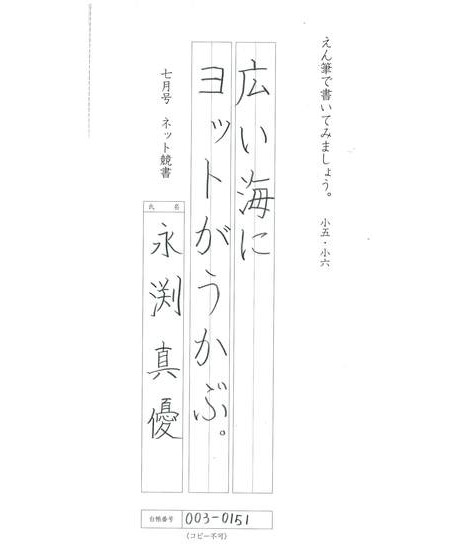 えん筆で書いてみましょう。 小五・小六
広い海に
ヨットがうかぶ。
七月号 ネット競書
氏名
永渕真優
台帳番号 003-0151
(コピー不可)